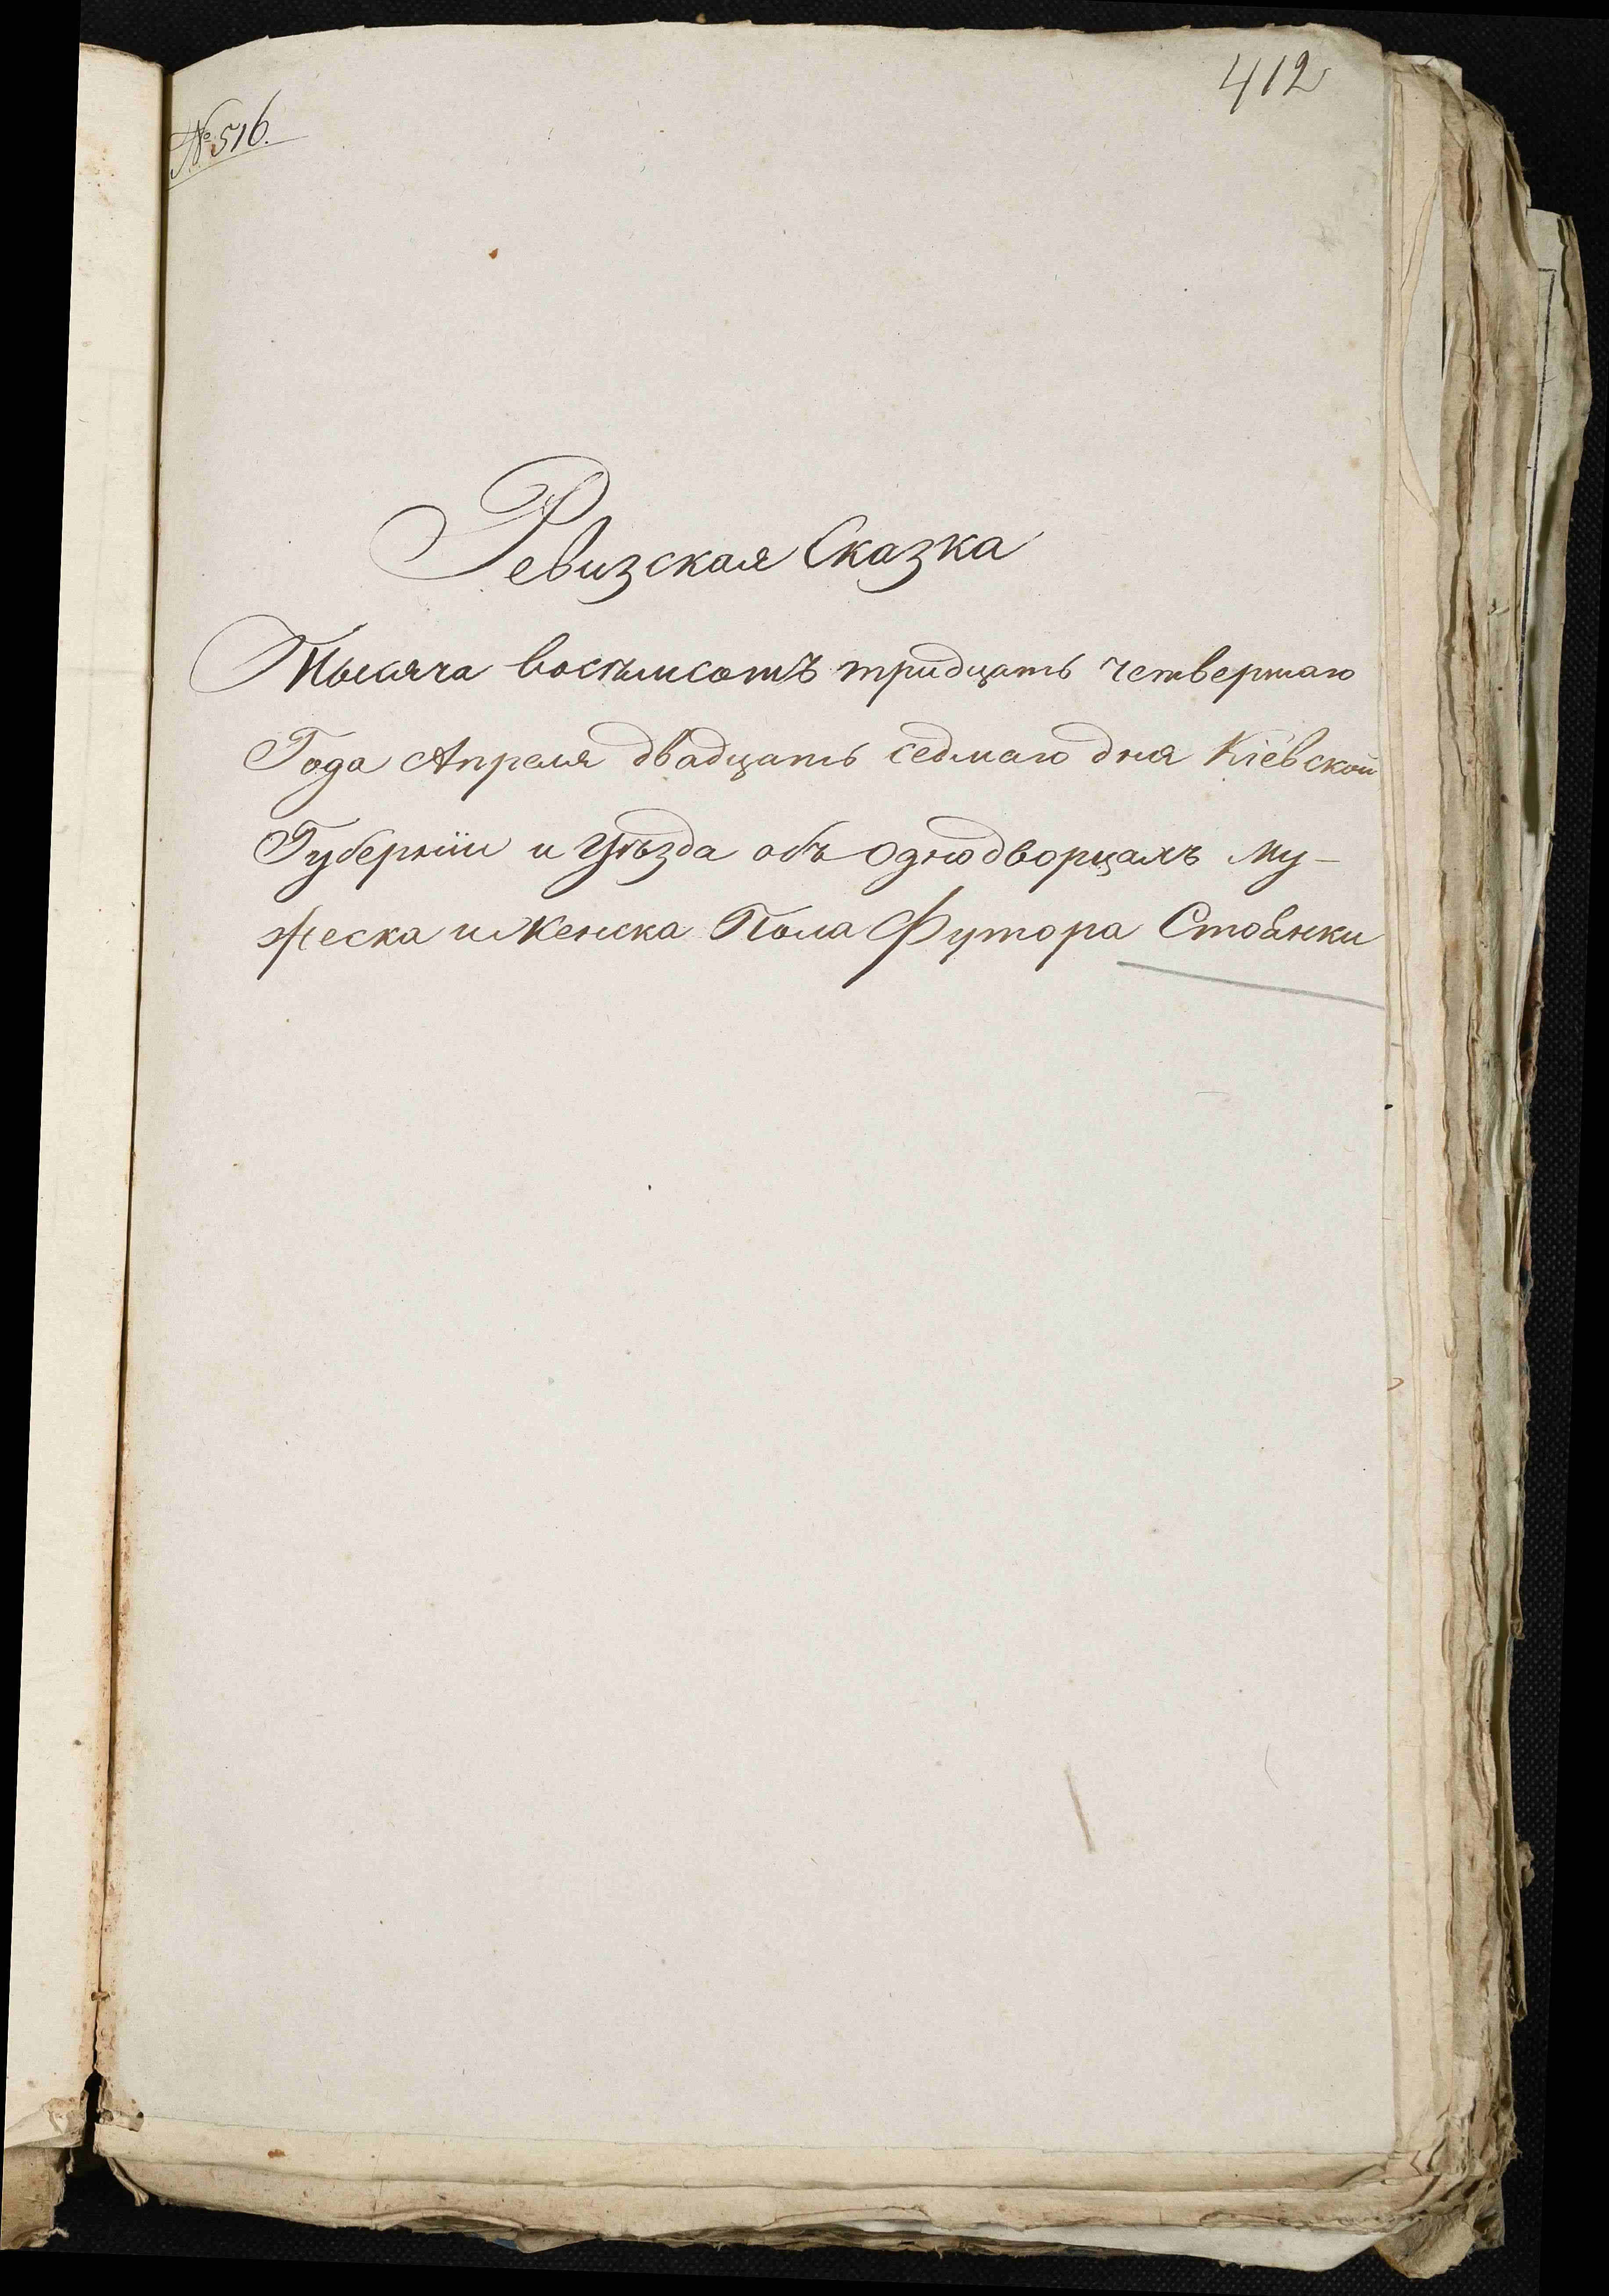 412
№ 516.
Ревизская Сказка
Тысяча восемьсотъ тридцать четвертаго
Года Апреля двадцать седмаго дня Кіевской
Губерніи и Уѣзда объ однодворцахъ му-
жеска и женска Пола Футора Стоянки